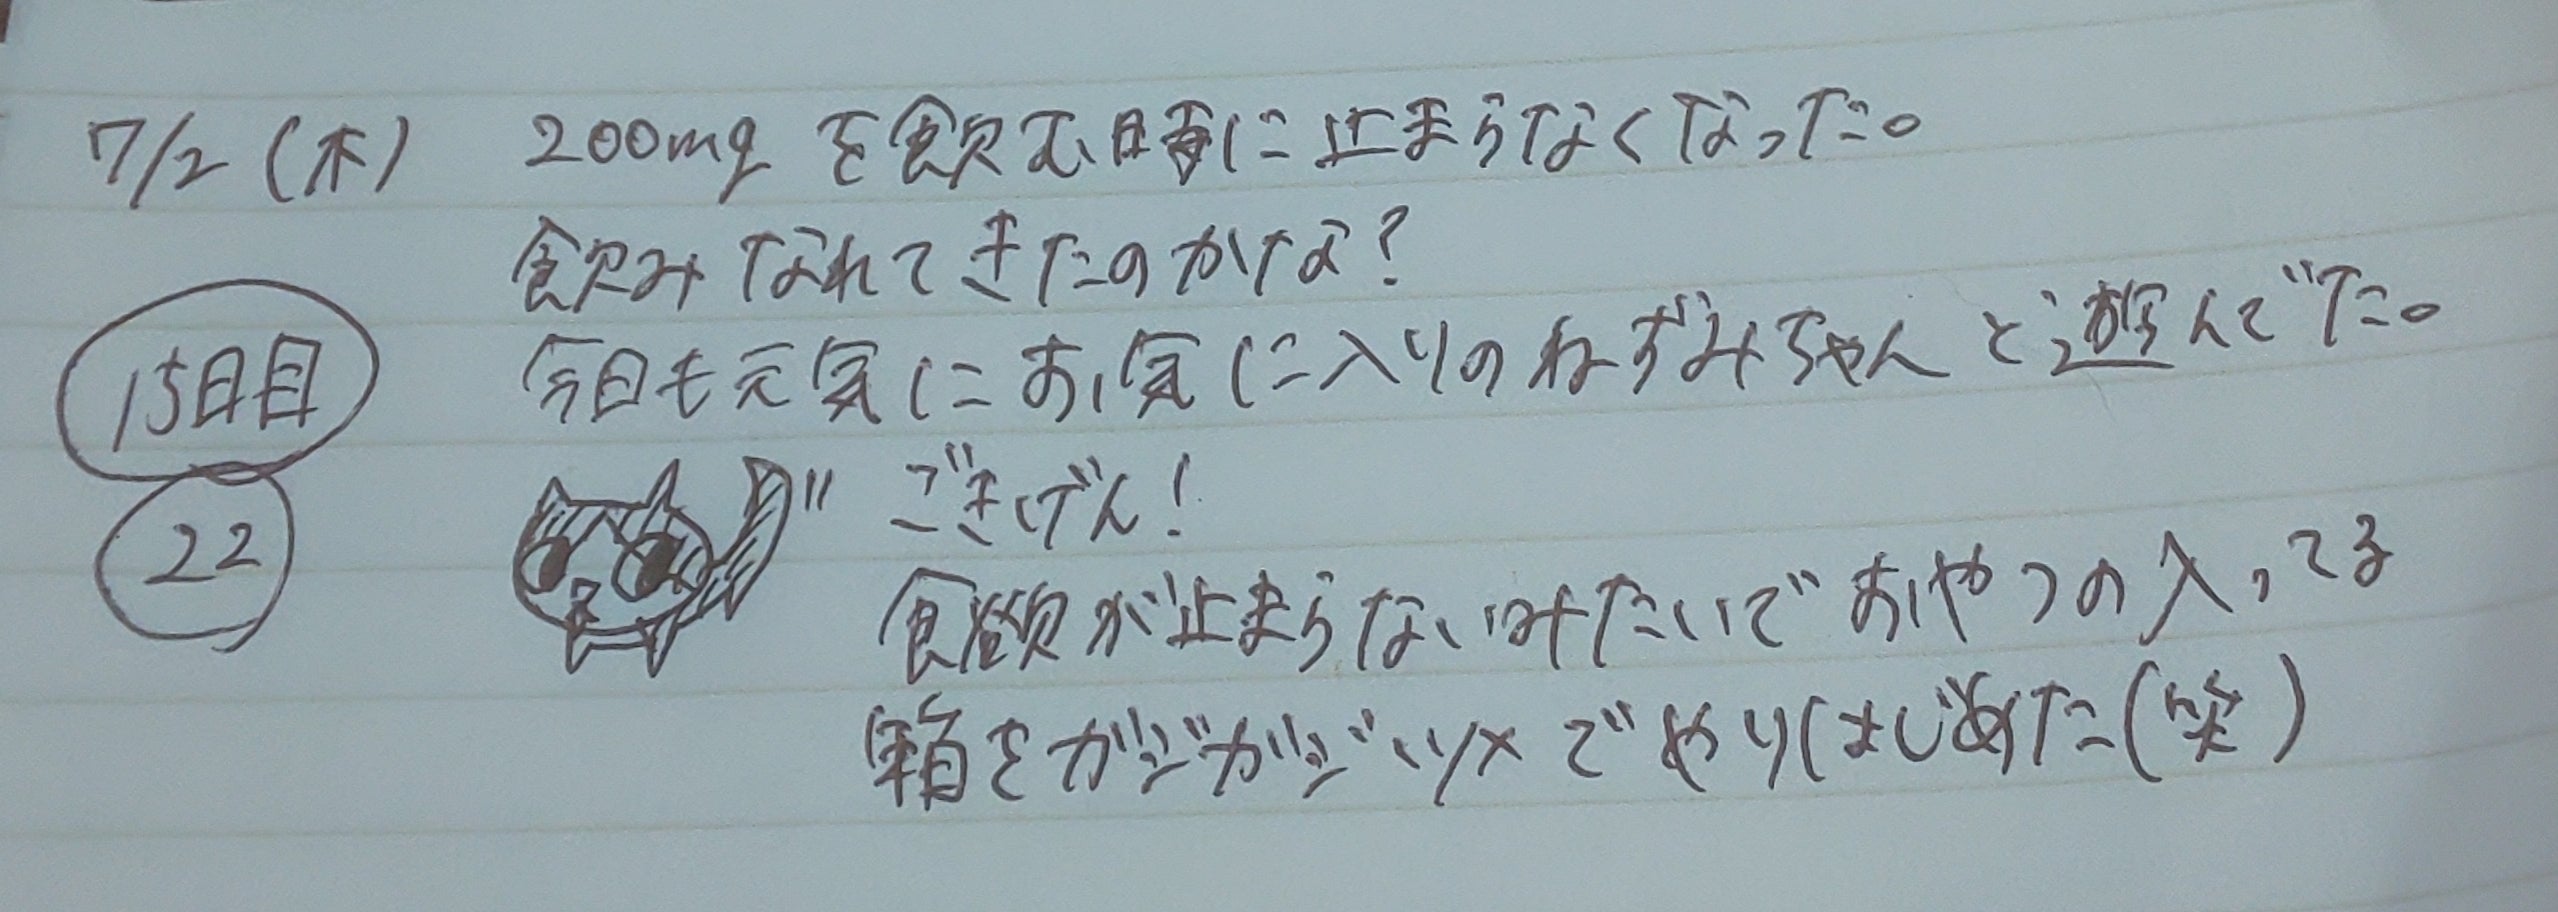 7/2(木) 200mgを飲む時に止まらなくなった。
飲みなれてきたのかな?
今日も元気にお気に入りのねずみちゃんと遊んでた。
15日目
22
ごきげん!
食欲が止まらないみたいでおやつの入ってる
箱をガジガジツメでやりはじめた(笑)